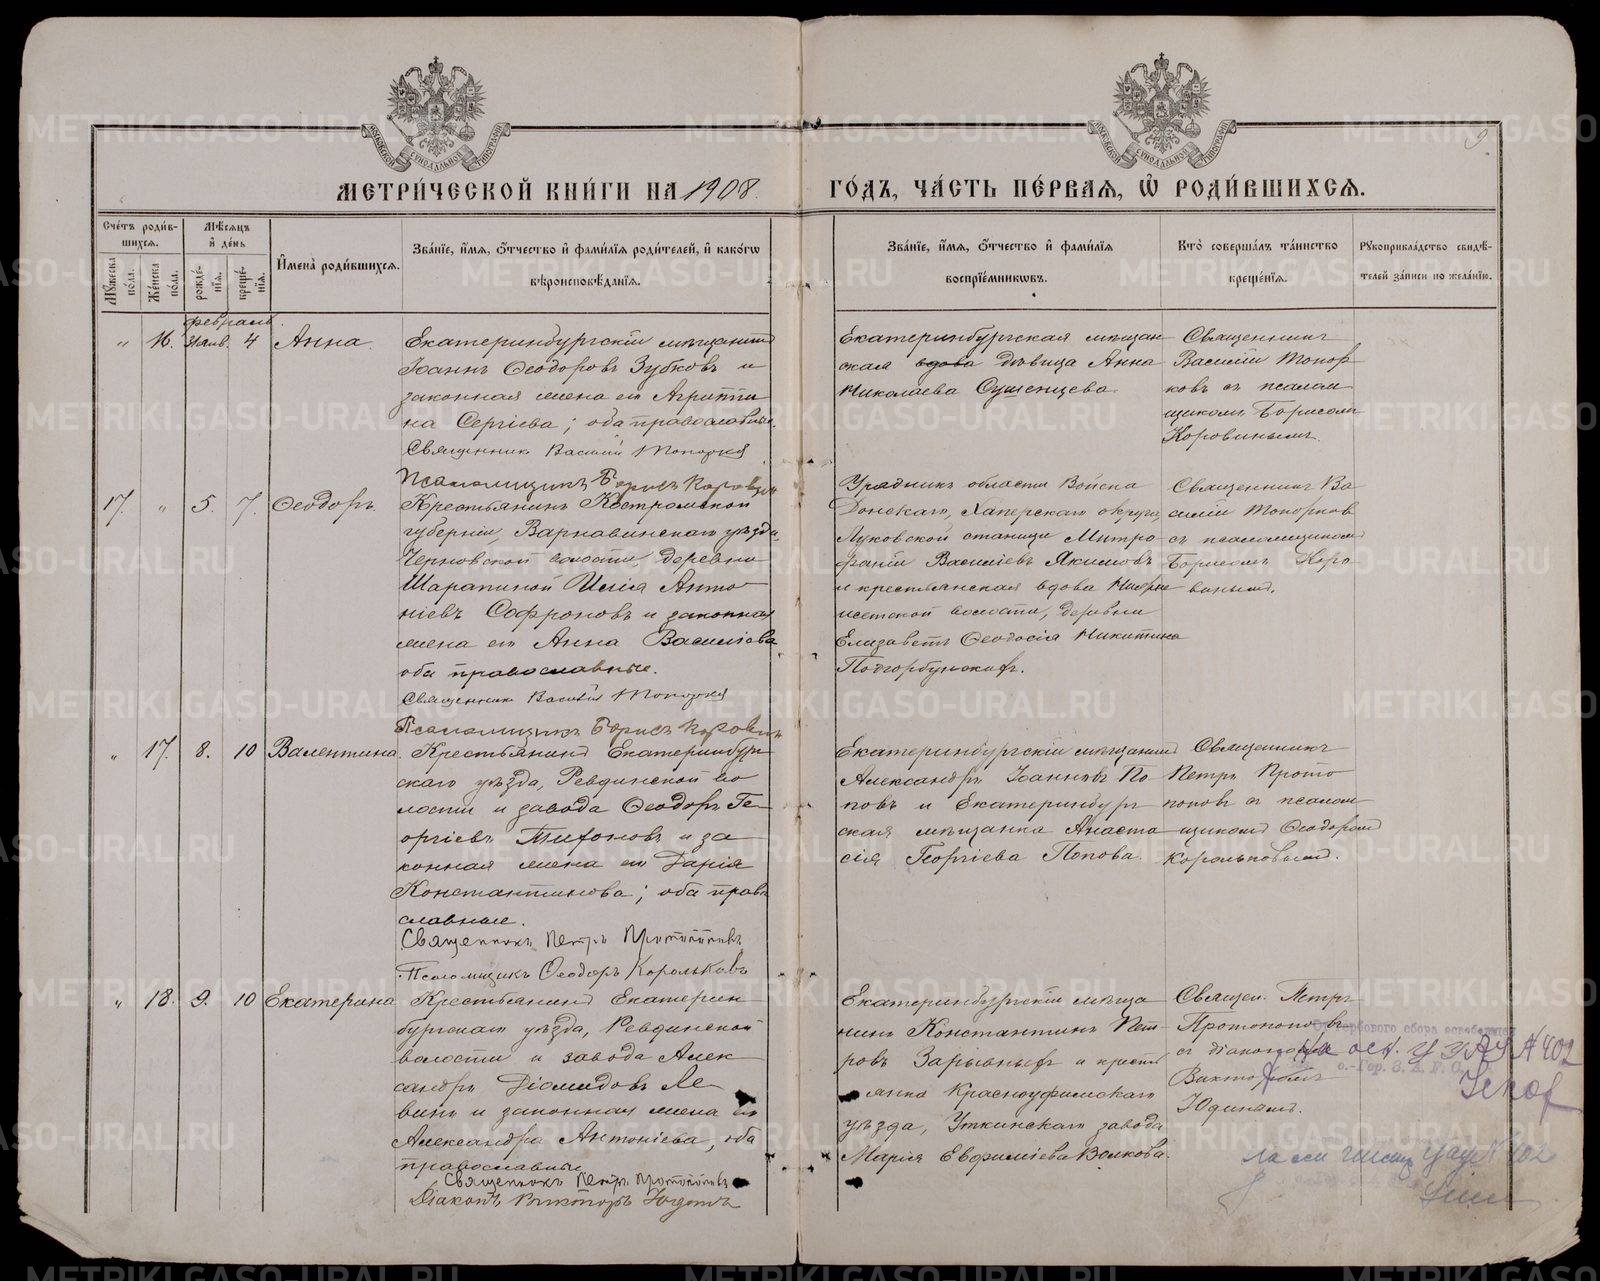 МЕТРИ́ЧЕСКОЙ КНИ́ГИ НА 1908 ГО́ДЪ, ЧА́СТЬ ПЕ́РВАЯ, Ѡ҆ РОДИ́ВШИХСЯ.
9
Сче́тъ роди́в-
шихся.
Мꙋ́жеска по́ла.
Же́нска по́ла.
Мѣ́сяцъ
и҆ де́нь
рожде́-
нїя.
креще́-
нїя.
И҆мена̀ роди́вшихся.
Зва́нїе, и҆́мя, ѻ҆́тчество и҆ фами́лїя роди́телей, и҆ како́гѡ
вѣроисповѣ́данїя.
Зва́нїе, и҆́мя, ѻ҆́тчество и҆ фами́лїя
воспрїе́мниковъ.
Кто̀ соверша́лъ та́инство
креще́нїя.
Рꙋкоприкла́дство свидѣ́-
телей за́писи по жела́нїю.
февраль.
" 16. 31 янв. 4 Анна.
Екатеринбургскій мѣщанинъ
Іоаннъ Ѳеодоровъ Зубковъ и
законная жена его Агриппи
на Сергіева; оба православные.
Священник Василий Топорков
Псаломщикъ Борисъ Коровин
Екатеринбургская мѣщан
ская вдова дѣвица Анна
Николаева Сушенцева.
Священникъ
Василій Топор
ковъ съ псалом
щикомъ Борисомъ
Коровинымъ.
17. " 5. 7. Ѳеодоръ.
Крестьянинъ Костромской
губерніи, Варнавинскаго уѣзда,
Черновской волости, деревни
Шарапиной Илія Анто
ніевъ Софроновъ и законная
жена его Анна Василіева
оба православные.
Священник Василий Топорков
Псаломщикъ Борисъ Коровин
Урядникъ области Войска
Донскаго, Хаперскаго округа,
Луковской станицы Митро
фаній Василіевъ Якимовъ
и крестьянская вдова Нижне
исетской волости, деревни
Елизаветъ Ѳеодосія Никитина
Подгорбунскихъ.
Священникъ Ва
силій Топорковъ
съ псаломщикомъ
Борисомъ Коро
винымъ.
" 17. 8. 10 Валентина.
Крестьянинъ Екатеринбург
скаго уѣзда, Ревдинской во
лости и завода Ѳеодоръ Ге
оргіевъ Тифоновъ и за
конная жена его Дарія
Константинова; оба право
славные.
Священникъ Петръ Протопоповъ
Псаломщикъ Ѳеодоръ Корольковъ
Екатеринбургскій мѣщанинъ
Александръ Іоанновъ По
повъ и Екатеринбург
ская мѣщанка Анаста
сія Георгіева Попова.
Священникъ
Петръ Прото
поповъ съ псалом
щикомъ Ѳеодоромъ
Корольковымъ.
" 18. 9. 10 Екатерина
Крестьянинъ Екатерин
бургскаго уѣзда, Ревдинской
волости и завода Алек
сандръ Діомидовъ Ле
винъ и законная жена его
Александра Антоніева, оба
православные
Священникъ Петръ Протопоповъ
Діаконъ Викторъ Юдинъ
Екатеринбургскій мѣща
нинъ Константинъ Пет
ровъ Зарывныхъ и кресть
янка Красноуфимскаго
уѣзда, Уткинскаго завода
Марія Евфиміева Волкова.
Священ. Петръ
Протопоповъ
съ діакономъ
Викторомъ
Юдинымъ.
№ 402
№ 402
METRIKI.GASO-URAL.RU